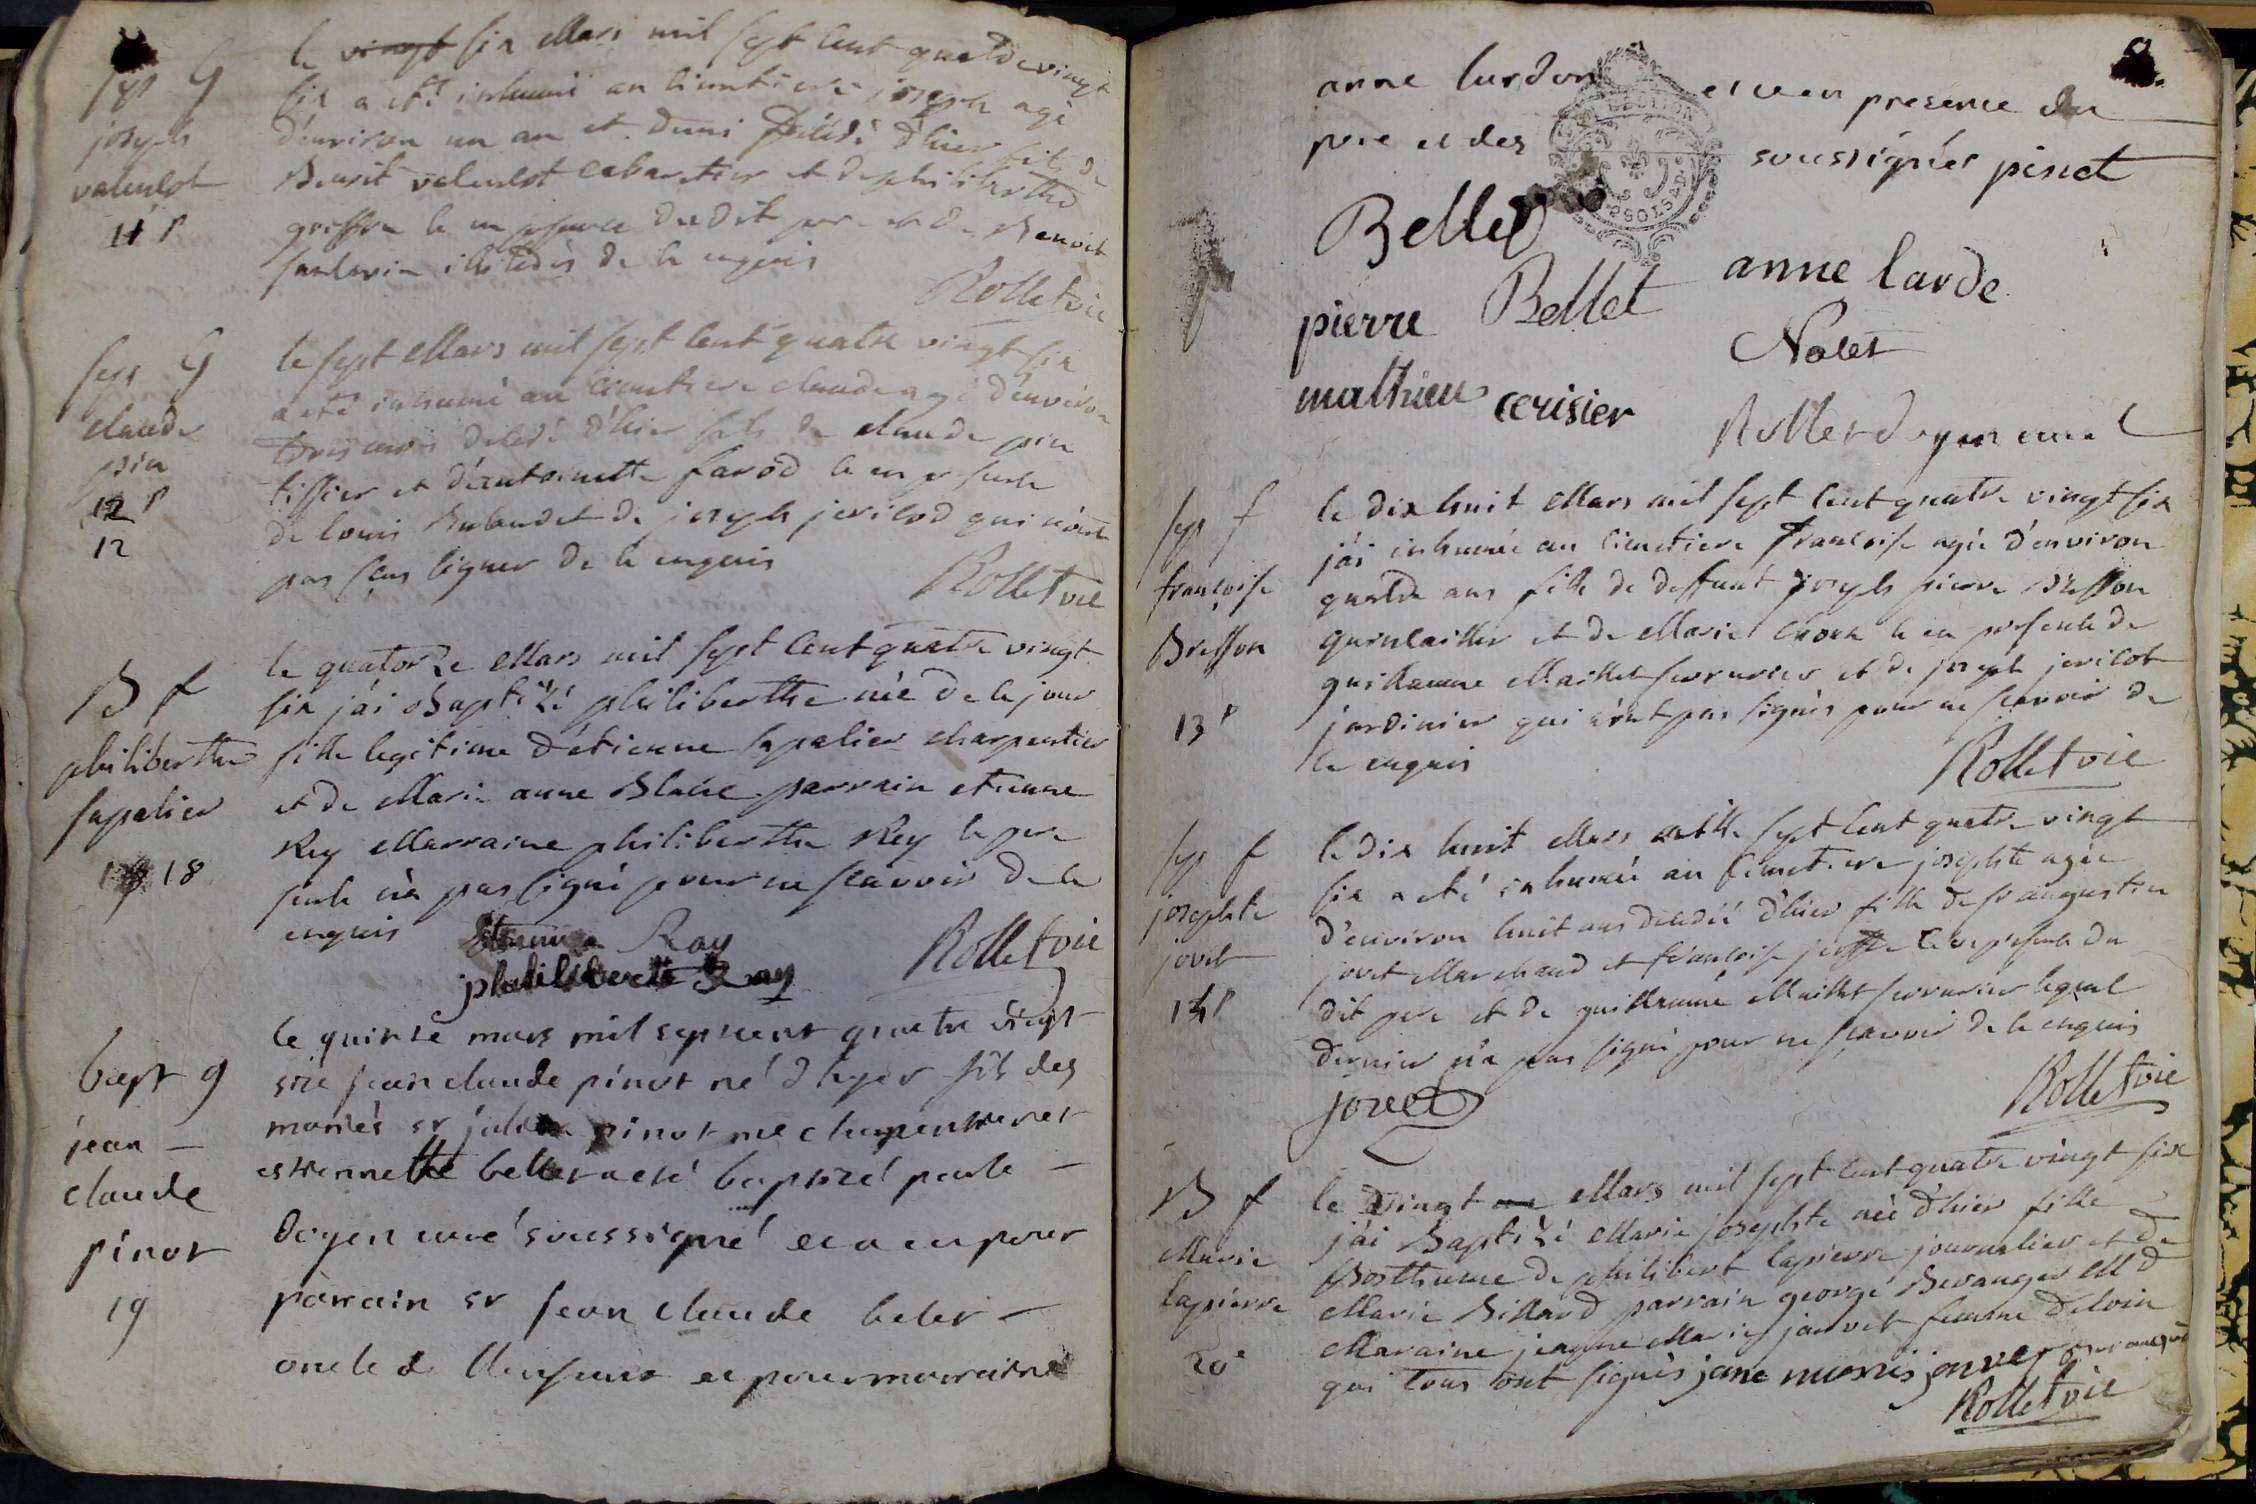 sep G
joseph
valenlot
11 p
le vingt six Mars mil sept Cent quatre vingt
six a eté inhumé au Cimetiere joseph agé
d'environ un an et demi décédé d'hier fils de
Benoit valenlot Cabaretier et de philiberthe
ce en presence du dit pere et de Benoit
illiterés de ce enquis
Rollet vic
sep G
claude
pin
12 p
12
le sept Mars mil sept Cent quatre vingt six
a eté inhumé au Cimetiere claude agé d'environ
trois mois décédé d'hier fils de claude pin
tissier et d'antoinette favod ce en presence
de louis et de joseph jericod qui n'ont
pas sçus signer de ce enquis
Rollet vic
B f
philiberthe
sapalier
18
le quatorze Mars mil sept Cent quatre vingt
six j'ai Baptizé philiberthe née de ce jour
fille legitime d'etienne sapalier charpentier
et de Marie anne Blanc parrain etienne
Rey Marraine philiberthe Rey le pere
seule n'a pas signé pour ne scavoir de ce
enquis
Etienne Ray
philiberte Ray
Rollet vic
bapt g
jean —
claude
pinot
19
le quinze mars mil sept cent quatre vingt
six jean claude pinot né d hyer fils des
mariés sr julien pinot me charpentier et
estiennette bellet a eté baptizé par le —
doyen curé soussigné et a eu pour
parrain sr jean claude belet —
oncle de l'enfant et pour marraine
anne lardon et ce en presence du
pere et des soussignés pinet
Bellet
anne larde
pierre Bellet
Nolet
mathieu cerisier
Rollet doyen curé
sep f
françoise
Bresson
13 p
le dix huit Mars mil sept Cent quatre vingt six
j'ai inhumée au Cimetiere françoise agée d'environ
quatre ans fille de deffunt joseph pierre Bresson
quinlailler et de Marie ce en presence de
guillaume Maillet serrurier et de joseph jericot
jardinier qui n'ont pas signés pour ne scavoir de
ce enquis
Rollet vic
sep f
josephte
jovet
14 p
le dix huit Mars mille sept Cent quatre vingt
six a eté inhumée au Cimetiere josephte agée
d'environ huit ans decedée d'hier fille de sr augustin
jovet Marchand et françoise ce en presence du
dit pere et de guillaume Maillet serrurier lequel
dernier n'a pas signé pour ne scavoir de ce enquis
jovet
Rollet vic
B f
Marie
lapierre
20e
le vingt un Mars mil sept Cent quatre vingt six
j'ai Baptizé Marie josephte née d'hier fille
Posthume de philibert lapierre journalier et de
Marie Billard parrain george Beranger Md
Maraine jeanne Marie janvet femme
qui tous ont signés jane marie janvet
Rollet vic